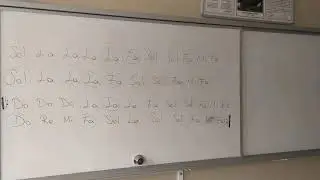 Sol La La La La Fa Sol Sol Fa Mi Fa
Sol La La La Fa Sol Sol Fa Mi Fa
Do Do Do La La La Fa Sol Sol Fa Mi Fa
Do Re Mi Fa Sol La Si Sol Fa Mi